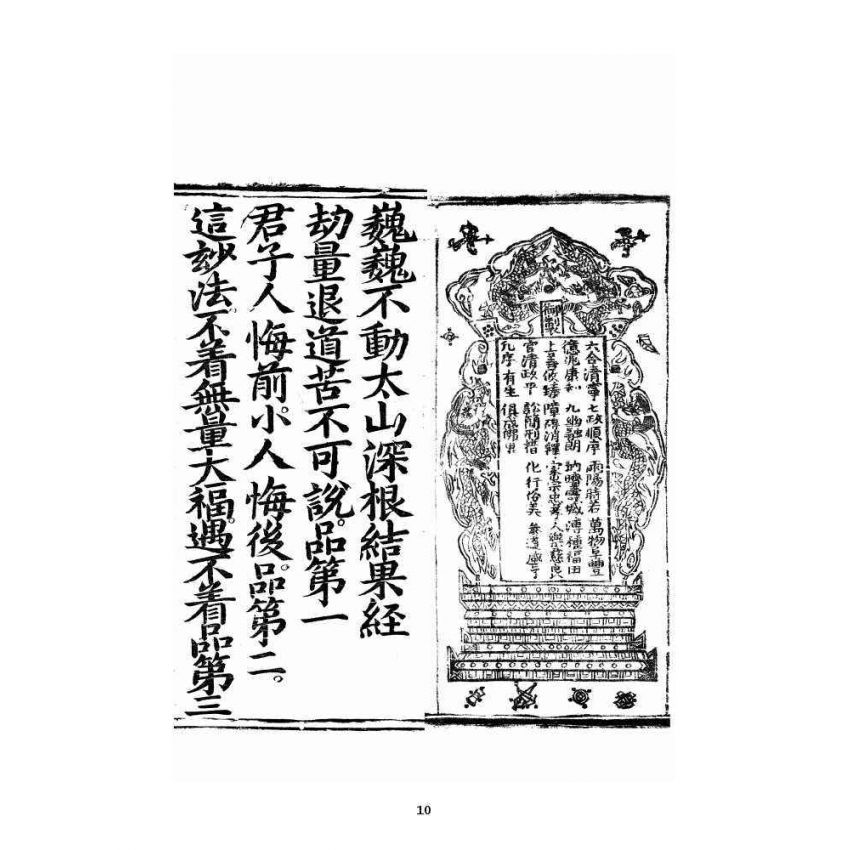 御製
六合清寧 七政順序 雨暘時若 萬物阜豐
億兆康和 九幽融朗 均躋壽域 溥種福田
上善攸臻 障礙消釋 家崇忠孝 人樂慈良
官清政平 訟簡刑措 化行俗美 泰道咸亨
有生 俱成佛果
巍巍不動太山深根結果経
劫量退道苦不可說。品第一
君子人悔前。小人悔後。品第二。
這玅法。不着無量大福。遇不着品第三
10